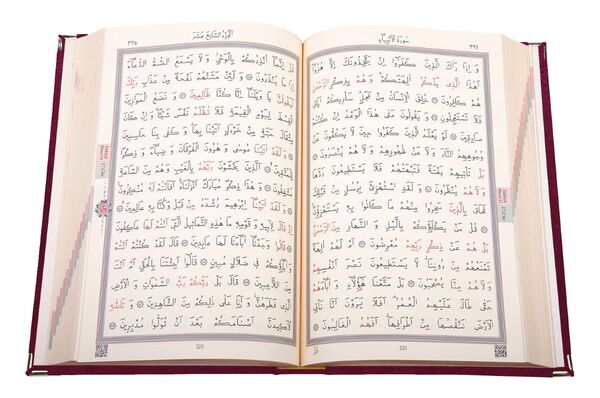 سُورَةُ الْاَنْبِيَاءِ ٣٢٤
وَاِذَا رَاٰكَ الَّذِينَ كَفَرُوا اِنْ يَتَّخِذُونَكَ اِلَّا هُزُوًا
اَهٰذَا الَّذِي يَذْكُرُ اٰلِهَتَكُمْ وَهُمْ بِذِكْرِ الرَّحْمٰنِ
هُمْ كَافِرُونَ ۝ خُلِقَ الْاِنْسَانُ مِنْ عَجَلٍ سَاُرِيكُمْ اٰيَاتِي
فَلَا تَسْتَعْجِلُونِ ۝ وَيَقُولُونَ مَتٰى هٰذَا الْوَعْدُ اِنْ كُنْتُمْ
صَادِقِينَ ۝ لَوْ يَعْلَمُ الَّذِينَ كَفَرُوا حِينَ لَا يَكُفُّونَ عَنْ
وُجُوهِهِمُ النَّارَ وَلَا عَنْ ظُهُورِهِمْ وَلَا هُمْ يُنْصَرُونَ ۝
بَلْ تَأْتِيهِمْ بَغْتَةً فَتَبْهَتُهُمْ فَلَا يَسْتَطِيعُونَ رَدَّهَا
وَلَا هُمْ يُنْظَرُونَ ۝ وَلَقَدِ اسْتُهْزِئَ بِرُسُلٍ مِنْ قَبْلِكَ
فَحَاقَ بِالَّذِينَ سَخِرُوا مِنْهُمْ مَا كَانُوا بِهِ يَسْتَهْزِؤُنَ ۝
قُلْ مَنْ يَكْلَؤُكُمْ بِالَّيْلِ وَالنَّهَارِ مِنَ الرَّحْمٰنِ
بَلْ هُمْ عَنْ ذِكْرِ رَبِّهِمْ مُعْرِضُونَ ۝ اَمْ لَهُمْ اٰلِهَةٌ
تَمْنَعُهُمْ مِنْ دُونِنَا لَا يَسْتَطِيعُونَ نَصْرَ اَنْفُسِهِمْ
وَلَا هُمْ مِنَّا يُصْحَبُونَ ۝ بَلْ مَتَّعْنَا هٰؤُلَاءِ وَاٰبَاءَهُمْ
حَتّٰى طَالَ عَلَيْهِمُ الْعُمُرُ اَفَلَا يَرَوْنَ اَنَّا نَأْتِي
الْاَرْضَ نَنْقُصُهَا مِنْ اَطْرَافِهَا اَفَهُمُ الْغَالِبُونَ ۝
324
اَلْجُزْءُ السَّابِعَ عَشَرَ ٣٢٥
قُلْ اِنَّمَا اُنْذِرُكُمْ بِالْوَحْيِ وَلَا يَسْمَعُ الصُّمُّ الدُّعَاءَ
اِذَا مَا يُنْذَرُونَ ۝ وَلَئِنْ مَسَّتْهُمْ نَفْحَةٌ مِنْ عَذَابِ رَبِّكَ
لَيَقُولُنَّ يَا وَيْلَنَا اِنَّا كُنَّا ظَالِمِينَ ۝ وَنَضَعُ الْمَوَازِينَ
الْقِسْطَ لِيَوْمِ الْقِيٰمَةِ فَلَا تُظْلَمُ نَفْسٌ شَيْئًا وَاِنْ كَانَ
مِثْقَالَ حَبَّةٍ مِنْ خَرْدَلٍ اَتَيْنَا بِهَا وَكَفٰى بِنَا حَاسِبِينَ ۝
وَلَقَدْ اٰتَيْنَا مُوسٰى وَهٰرُونَ الْفُرْقَانَ وَضِيَاءً وَذِكْرًا
لِلْمُتَّقِينَ ۝ اَلَّذِينَ يَخْشَوْنَ رَبَّهُمْ بِالْغَيْبِ وَهُمْ مِنَ السَّاعَةِ
مُشْفِقُونَ ۝ وَهٰذَا ذِكْرٌ مُبَارَكٌ اَنْزَلْنَاهُ اَفَاَنْتُمْ لَهُ مُنْكِرُونَ ۝
وَلَقَدْ اٰتَيْنَا اِبْرٰهِيمَ رُشْدَهُ مِنْ قَبْلُ وَكُنَّا بِهِ عَالِمِينَ ۝
اِذْ قَالَ لِاَبِيهِ وَقَوْمِهِ مَا هٰذِهِ التَّمَاثِيلُ الَّتِي اَنْتُمْ لَهَا
عَاكِفُونَ ۝ قَالُوا وَجَدْنَا اٰبَاءَنَا لَهَا عَابِدِينَ ۝ قَالَ لَقَدْ كُنْتُمْ اَنْتُمْ
وَاٰبَاؤُكُمْ فِي ضَلَالٍ مُبِينٍ ۝ قَالُوا اَجِئْتَنَا بِالْحَقِّ اَمْ اَنْتَ
مِنَ اللَّاعِبِينَ ۝ قَالَ بَلْ رَبُّكُمْ رَبُّ السَّمٰوَاتِ وَالْاَرْضِ
الَّذِي فَطَرَهُنَّ وَاَنَا عَلٰى ذٰلِكُمْ مِنَ الشَّاهِدِينَ ۝ وَتَاللّٰهِ
لَاَكِيدَنَّ اَصْنَامَكُمْ بَعْدَ اَنْ تُوَلُّوا مُدْبِرِينَ ۝
325